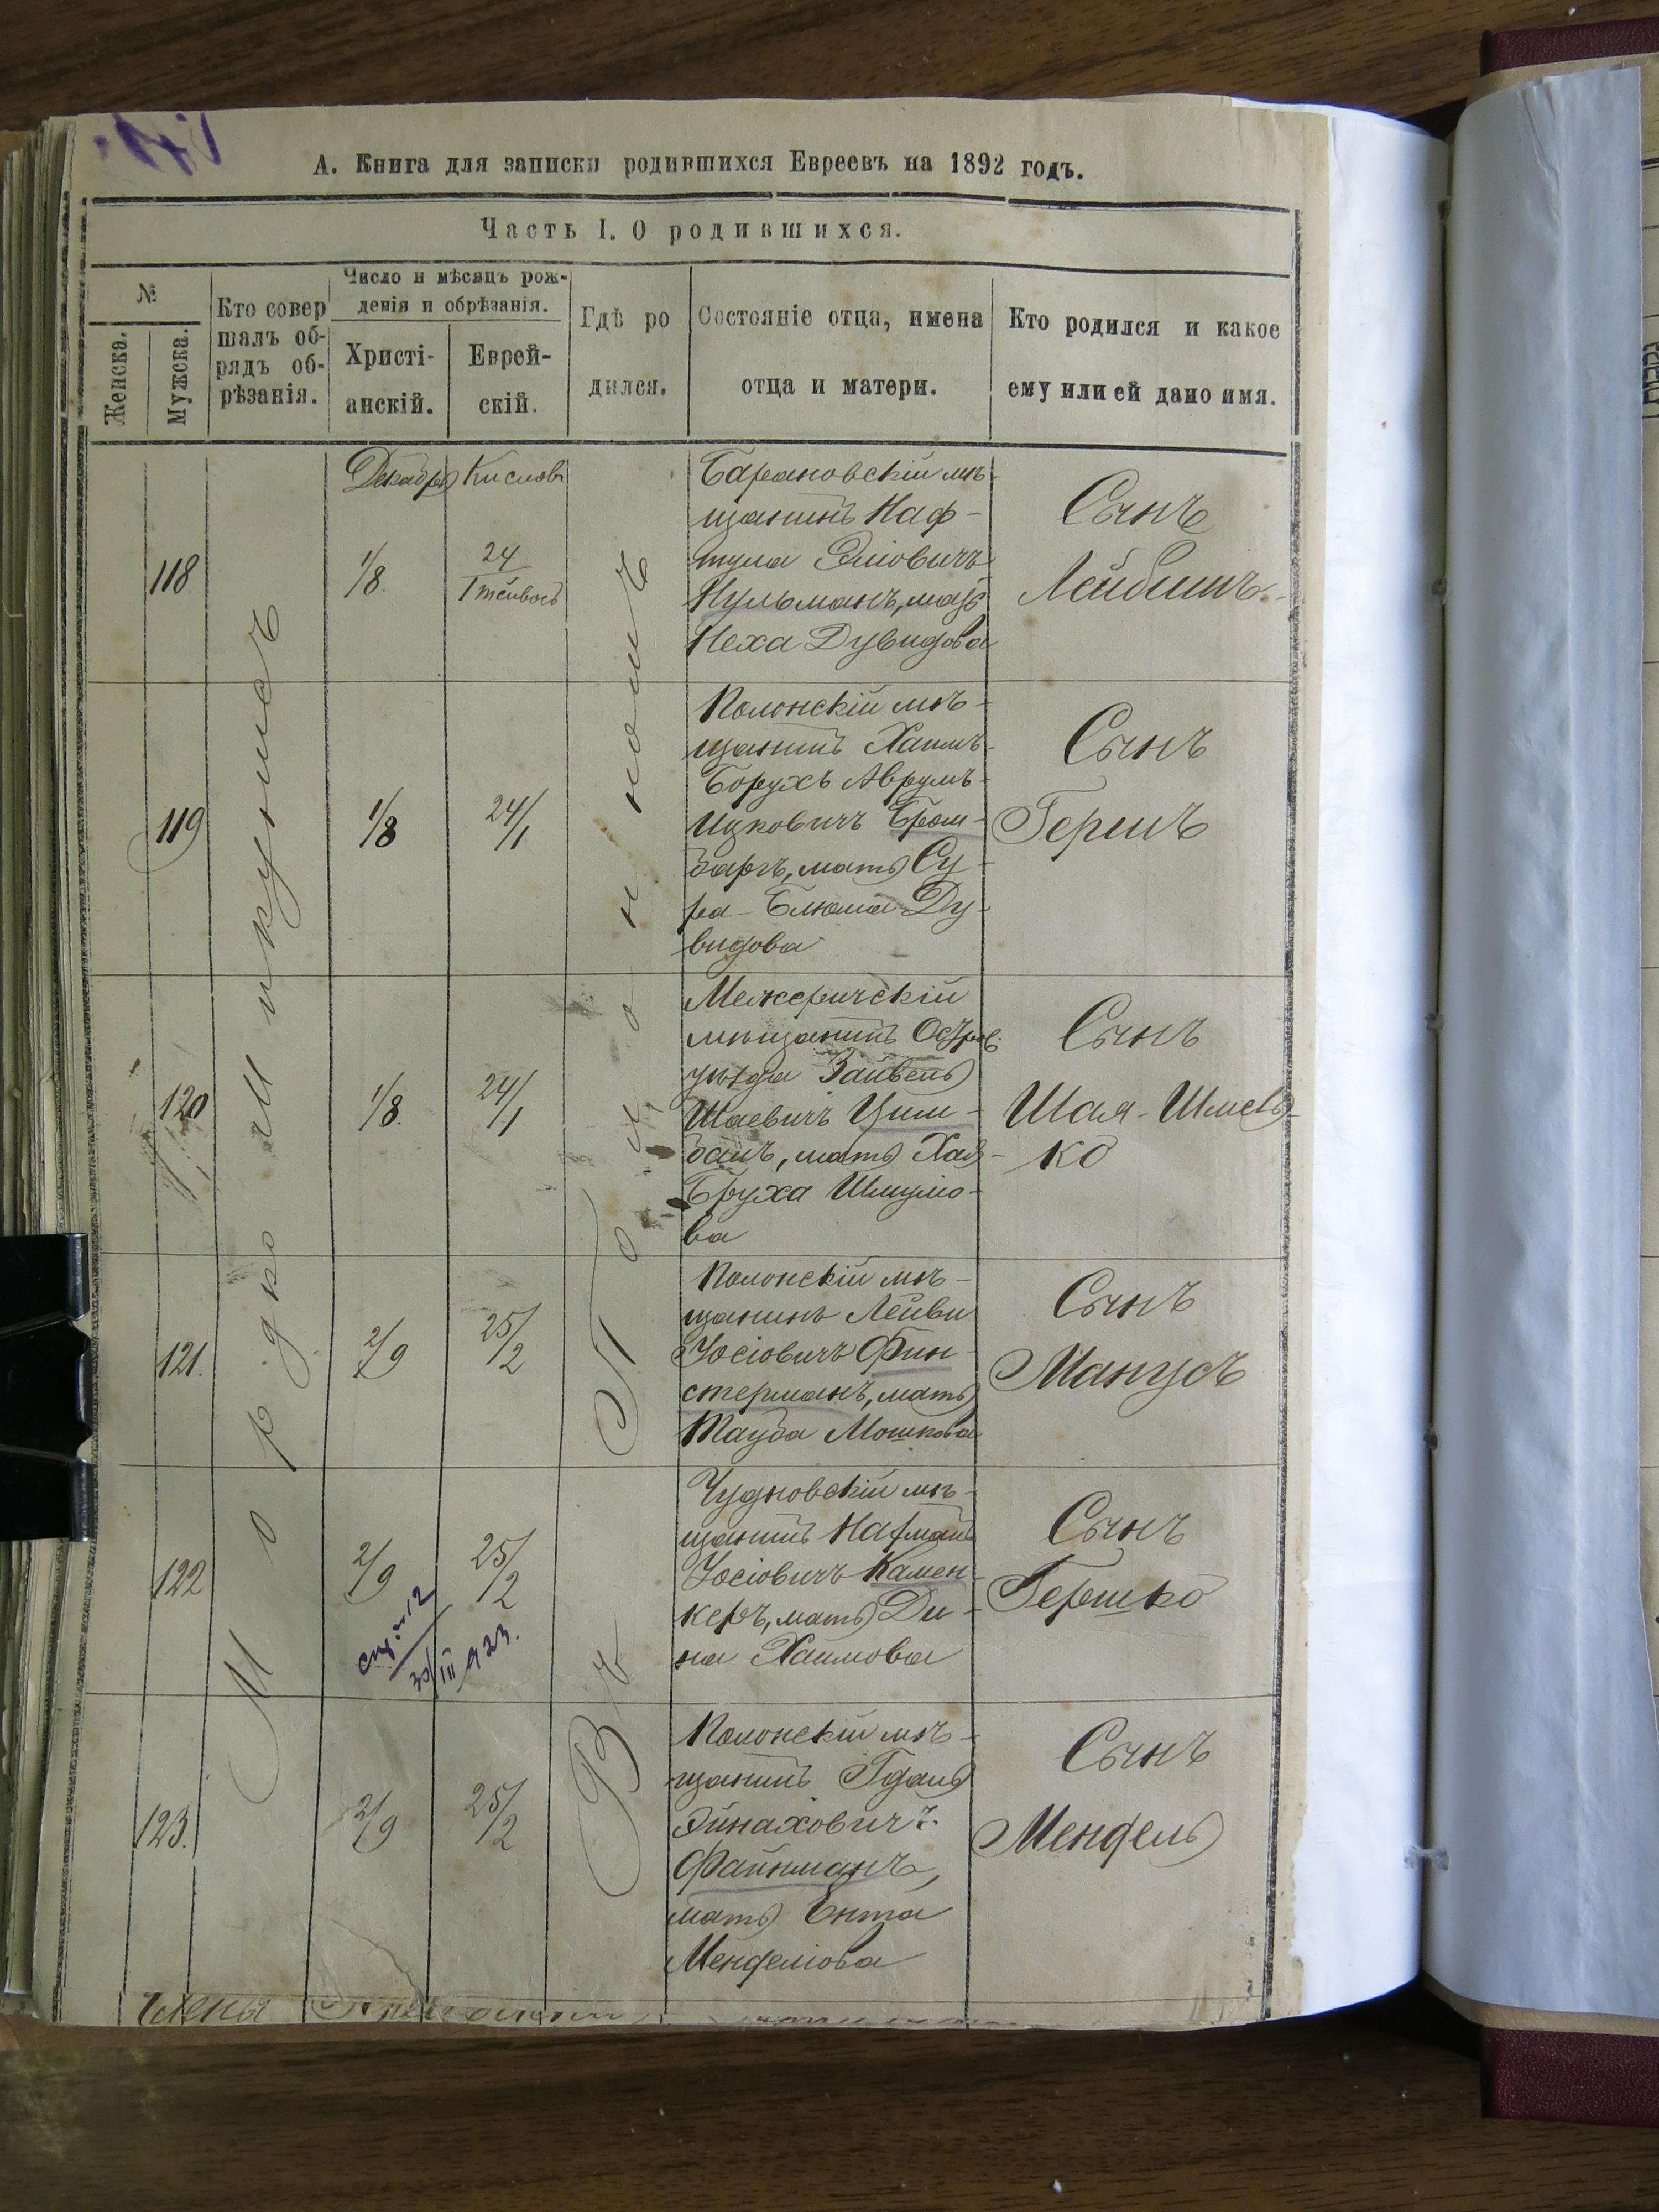 А. Книга для записки родившихся Евреевъ на 1892 годъ.
Часть I. О родившихся.
№
Женска.
Мужска.
Кто совер
шалъ об-
рядъ об-
рѣзанія.
Число и мѣсяцъ рож-
денія и обрѣзанія.
Христі-
анскій.
Еврей-
скій.
Гдѣ ро
дился.
Состояніе отца, имена
отца и матери.
Кто родился и какое
ему или ей дано имя.
Мордко Микунисъ
Въ Полонномъ
118
Декабрь
1/8.
Кислевъ
24
1 тейвосъ
Барановскій мѣ-
щанинъ Наф-
тула Эліовичъ
Нульманъ, мать
Неха Дувидова
Сынъ
Лейбишъ.
119
1/8
24/1
Полонскій мѣ-
щанинъ Хаимъ-
Борухъ Аврумъ-
Ицковичъ Бром-
бергъ, мать Су-
ра-Блюма Ду-
видова
Сынъ
Гершъ
120
1/8.
24/1
Межеричскій
мѣщанинъ Острож.
уѣзда Зайвель
Шаевичъ Цим-
балъ, мать Хая-
Бруха Шмулю-
ва
Сынъ
Шая-Шмель-
ко
121.
2/9
25/2
Полонскій мѣ-
щанинъ Лейви
Іосіовичъ Фин-
стерманъ, мать
Тауба Мошкова
Сынъ
Манусъ
122
2/9
25/2
30/III 923.
Чудновскій мѣ-
щанинъ Нахманъ
Іосіовичъ Камен-
керъ, мать Ди-
на Хаимова
Сынъ
Гершко
123.
2/9
25/2
Полонскій мѣ-
щанинъ Гдаль
Эйнаховичъ
Файнманъ,
мать Ента
Менделіова
Сынъ
Мендель
Члены